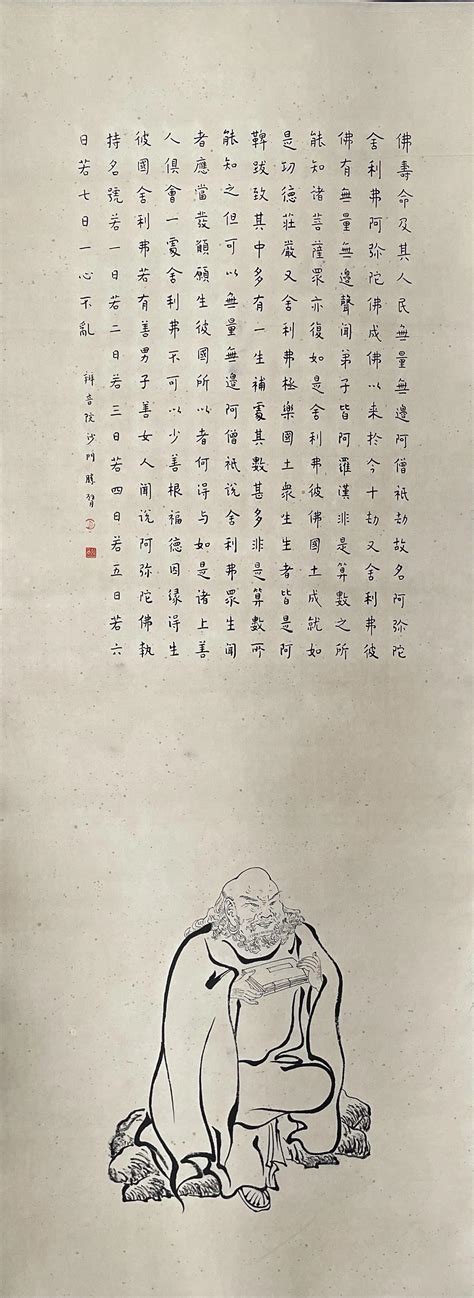 佛壽命及其人民無量無邊阿僧祇劫故名阿弥陀
舍利弗阿弥陀佛成佛以來於今十劫又舍利弗彼
佛有無量無邊聲聞弟子皆阿羅漢非是算數之所
能知諸菩薩眾亦復如是舍利弗彼佛國土成就如
是功德莊嚴又舍利弗極樂國土眾生生者皆是阿
鞞跋致其中多有一生補處其數甚多非是算數所
能知之但可以無量無邊阿僧祇說舍利弗眾生聞
者應當發願願生彼國所以者何得与如是諸上善
人俱會一處舍利弗不可以少善根福德因緣得生
彼國舍利弗若有善男子善女人聞說阿弥陀佛執
持名號若一日若二日若三日若四日若五日若六
日若七日一心不亂
辨音院沙門勝臂